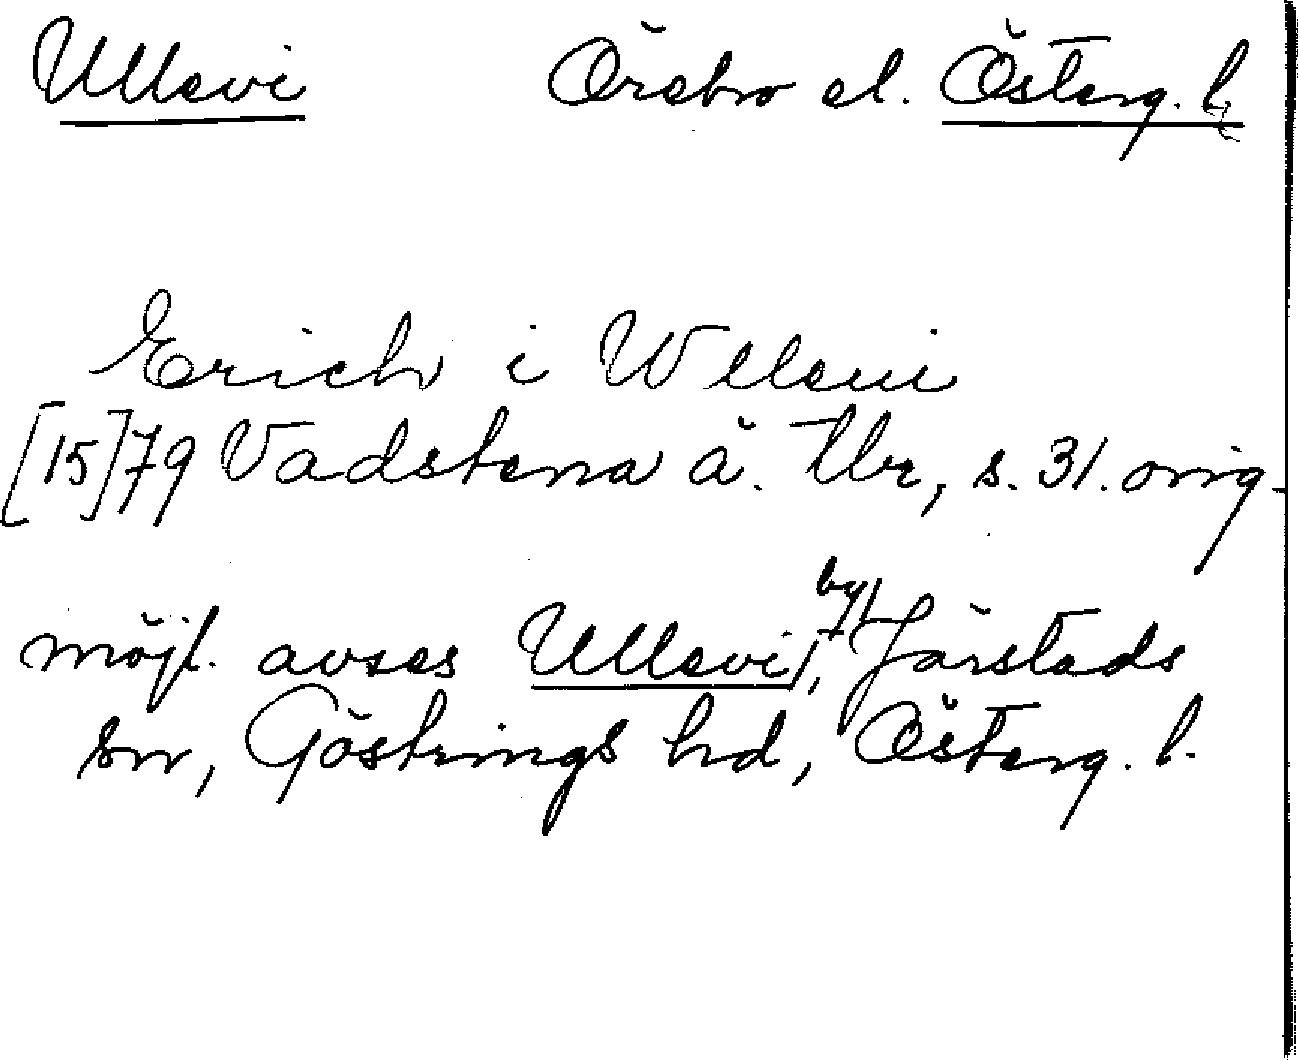 Ullevi Örebro el. Österg. l.
Erich i Wlleui
[15]79 Vadstena ä. Tbr, s. 31. orig.
möjl. avses Ullevi, by, Järstads
sn, Göstrings hd, Österg. l.